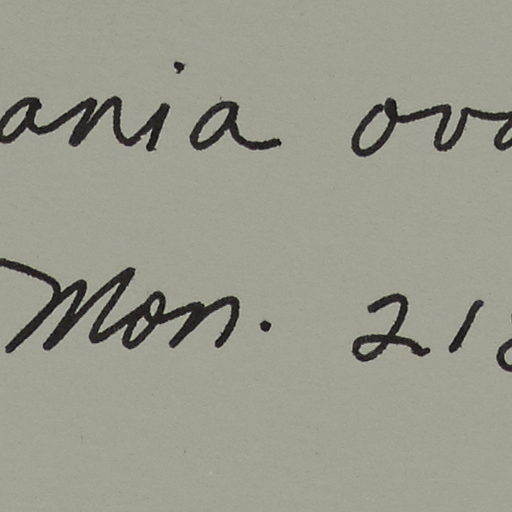 ania ova
Mon. 218